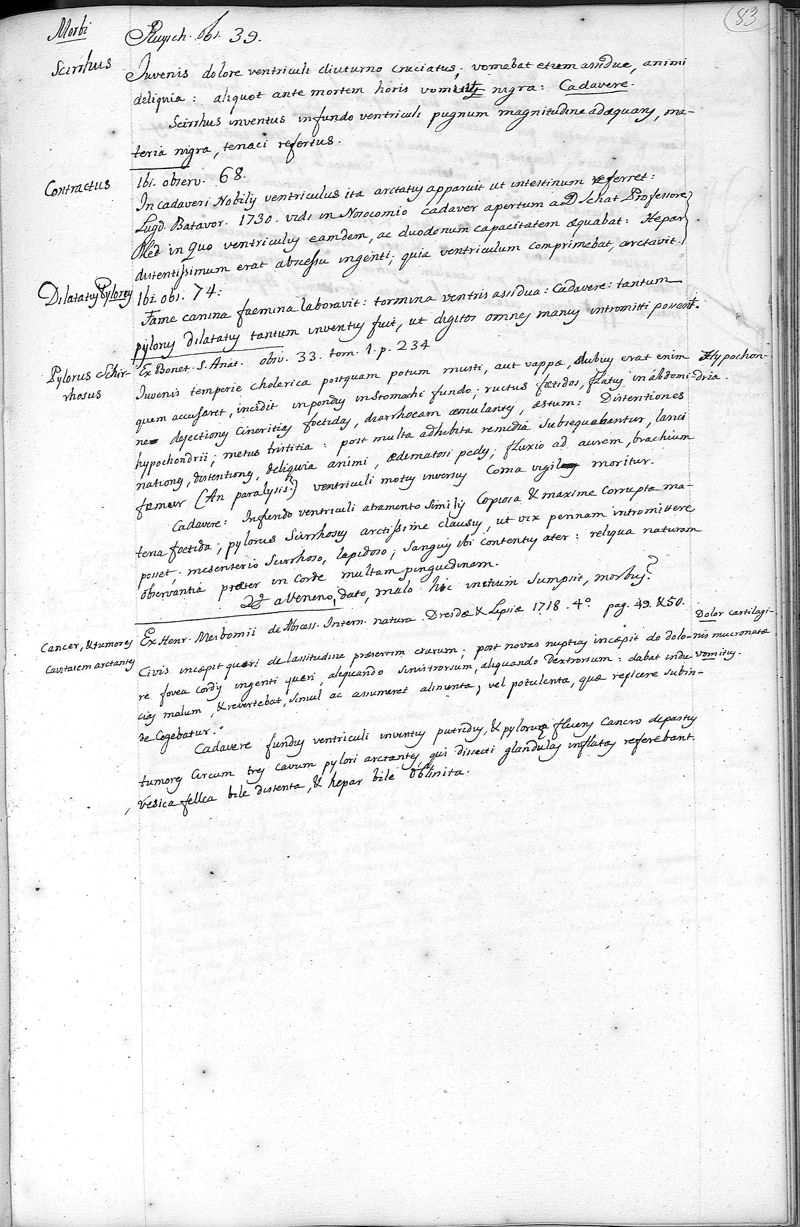 83
Morbi
Ruysch. obs. 39.
Scirrhus
Juvenis dolore ventriculi diuturno cruciatus, vomebat etiam assidue, animi
deliquia: aliquot ante mortem horis vomuit nigra: Cadavere.
Scirrhus inventus in fundo ventriculi pugnum magnitudine adæquans, ma-
teria nigra, tenaci refertus.
Contractus
Ibi. observ. 68.
In cadaveri Nobilis ventriculus ita arctatus apparuit ut intestinum referret:
Lugd. Batavor. 1730. vidi in Nosocomio cadaver apertum a D. Schat Professore
Med in quo ventriculus eamdem, ac duodenum capacitatem æquabat: Hepar
distentissimum erat abscessu ingenti, quia ventriculum comprimebat, arctavit.
Dilatatus Pylorus
Ibi. obs. 74:
Fame canina fæmina laboravit: tormina ventris assidua: Cadavere: tantum
pylorus dilatatus tantum inventus fuit, ut digitos omnes manus intromitti possent.
Pylorus Schir-
rhosus
Ex Bonet. S. Anat. obsv. 33. tom. 1. p. 234
Juvenis temperie cholerica postquam potum musti, aut vappæ, dubius erat enim
Hypochon-
dria.
quem accusaret, incidit in pondus in stomachi fundo; ructus fætidos, flatus in abdomi-
ne dejectiones cineritias foetidas, diarrhoeam æmulantes, æstum: Distentiones
hypochondrii; metus tristitia: post multa adhibita remedia subsequebantur, lanci
nationes, distentiones, deliquia animi, ædematosi pedes; fluxio ad aurem, brachium
femur (An paralysis?) ventriculi motus inversus Coma vigil moritur.
Cadavere: In fundo ventriculi atramento similis copiosa & maxime corrupta ma-
teria foetida; pylorus scirrhosus arctissime clausus, ut vix pennam intromittere
posset; mesenterio scirrhoso, lapidoso; sanguis ibi contentus ater: reliqua naturam
observantia præter in corde multam pinguedinem.
a Veneno dato, malo hic initium sumpsit, morbus?
Cancer, & tumores
Cavitatem arctantes
Ex Henr. Meibomii de Abcess. Intern. natura. Dresdæ & Lipsiæ 1718. 4º pag. 49. & 50.
Dolor cartilagi-
nis mucronatæ
vomitus.
Civis incæpit quæri de lassitudine præsertim crurum; post novas nuptias incæpit de dolo-
re fovea cordis ingenti quæri, aliquando sinistrorsum, aliquando dextrorsum: dabat indu-
cias malum, & revertebat, simul ac assumeret alimenta, vel potulenta, quæ reficere subin-
de cogebatur.
Cadavere fundus ventriculi inventus putridus, & pylorus fluens cancro depastus
tumores circum tres cavum pylori arctantes, qui dissecti glandulas inflatas referebant.
vesica fellea bile distenta, & hepar bile oblinita.